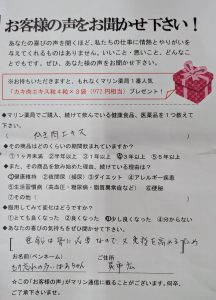 お客様の声をお聞かせ下さい！
あなたの喜びの声を聞くほど、私たちの仕事に情熱とやりがいを
与えてくれるものはありません。いいこと・悪いこと、どんなこ
とでもです。ぜひ、あなた様の声をお聞かせ下さい。
※お持ちいただきますと、もれなくマリン薬局１番人気
「カキ肉エキス粒４粒×３袋（972円相当）プレゼント！
◆マリン薬局でご購入、続けて飲んでいる健康食品、医薬品を１つ教えて
下さい。
（ カキ肉エキス ）
◆その商品はどのくらいの期間飲まれていますか？
①１ヶ月未満 ②半年以上 ③１年以上 ④３年以上 ⑤５年以上
◆また、その商品を飲み始めた理由は何ですか。続けている理由は何ですか。
①健康維持 ②疲労回復 ③強壮 ④ダイエット ⑤アレルギー疾患
⑥生活習慣病（高血圧・糖尿病・脂質異常症など） ⑥便秘
⑦その他（ ）
◆服用してみて変化はどうですか？
①とても良くなった ②良くなった ③少し良くなった ④分からない
◆あなたの喜びの気持ちをぜひ聞かせて下さい！
お名前（ペンネーム） ご住所
☆この「お客様の声」がマリン通信に載ることがございます。何卒、
ご了承下さいませ。